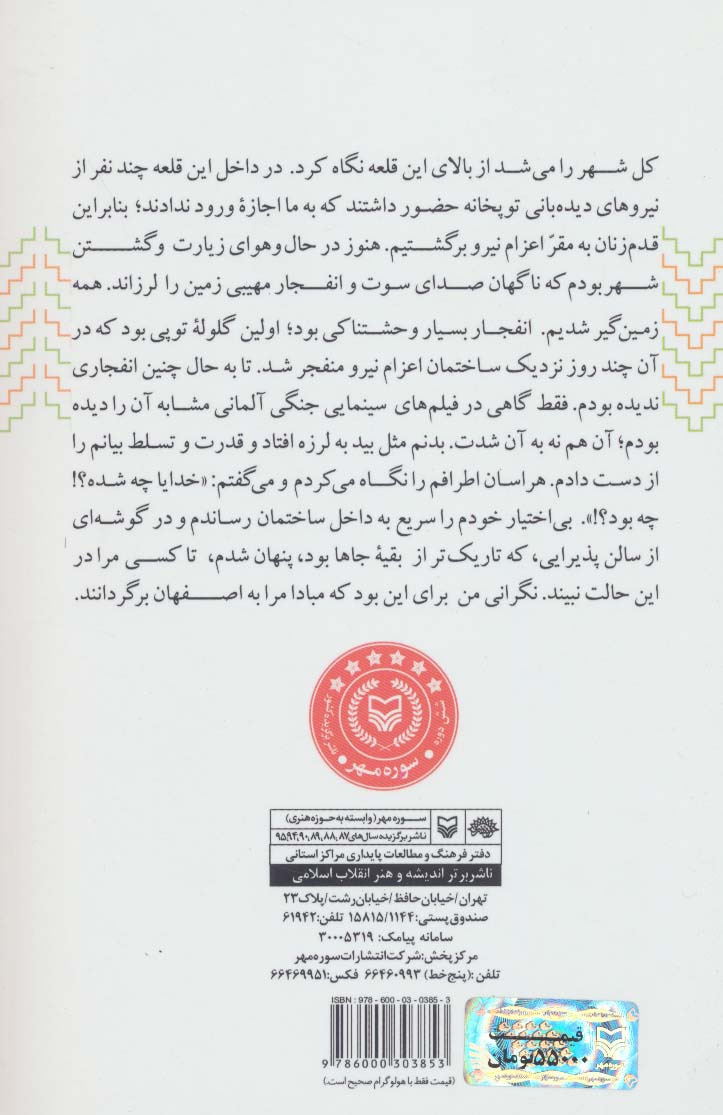 کل شهر را می‌شد از بالای این قلعه نگاه کرد. در داخل این قلعه چند نفر از
نیروهای دیده‌بانی توپخانه حضور داشتند که به ما اجازهٔ ورود ندادند؛ بنابراین
قدم‌زنان به مقرّ اعزام نیرو برگشتیم. هنوز در حال‌وهوای زیارت وگشتن
شهر بودم که ناگهان صدای سوت و انفجار مهیبی زمین را لرزاند. همه
زمین‌گیر شدیم. انفجار بسیار وحشتناکی بود؛ اولین گلولهٔ توپی بود که در
آن چند روز نزدیک ساختمان اعزام نیرو منفجر شد. تا به حال چنین انفجاری
ندیده بودم. فقط گاهی در فیلم‌های سینمایی جنگی آلمانی مشابه آن را دیده
بودم؛ آن هم نه به آن شدت. بدنم مثل بید به لرزه افتاد و قدرت و تسلط بیانم را
از دست دادم. هراسان اطرافم را نگاه می‌کردم و می‌گفتم: «خدایا چه شده؟!
چه بود؟!». بی‌اختیار خودم را سریع به داخل ساختمان رساندم و در گوشه‌ای
از سالن پذیرایی، که تاریک‌تر از بقیهٔ جاها بود، پنهان شدم، تا کسی مرا در
این حالت نبیند. نگرانی من برای این بود که مبادا مرا به اصفهان برگردانند.
شش دوره
ناشر برگزیده کشور
سوره مهر
سوره مهر (وابسته به حوزه هنری)
ناشر برگزیده سال‌های ۸۷، ۸۸، ۸۹، ۹۰، ۹۴و۹۵
دفتر فرهنگ و مطالعات پایداری مراکز استانی
ناشر برتر اندیشه و هنر انقلاب اسلامی
تهران/خیابان حافظ/خیابان رشت/پلاک ۲۳
صندوق پستی: ۱۵۸۱۵/۱۱۴۴ تلفن: ۶۱۹۴۲
سامانه پیامک: ۳۰۰۰۵۳۱۹
مرکز پخش: شرکت انتشارات سوره مهر
تلفن: (پنج خط) ۶۶۴۶۰۹۹۳ فکس: ۶۶۴۶۹۹۵۱
ISBN : 978 - 600 - 03 - 0385 - 3
9 786000 303853
(قیمت فقط با هولوگرام صحیح است.)
قیمت پشت
۵۵۰۰۰ تومان